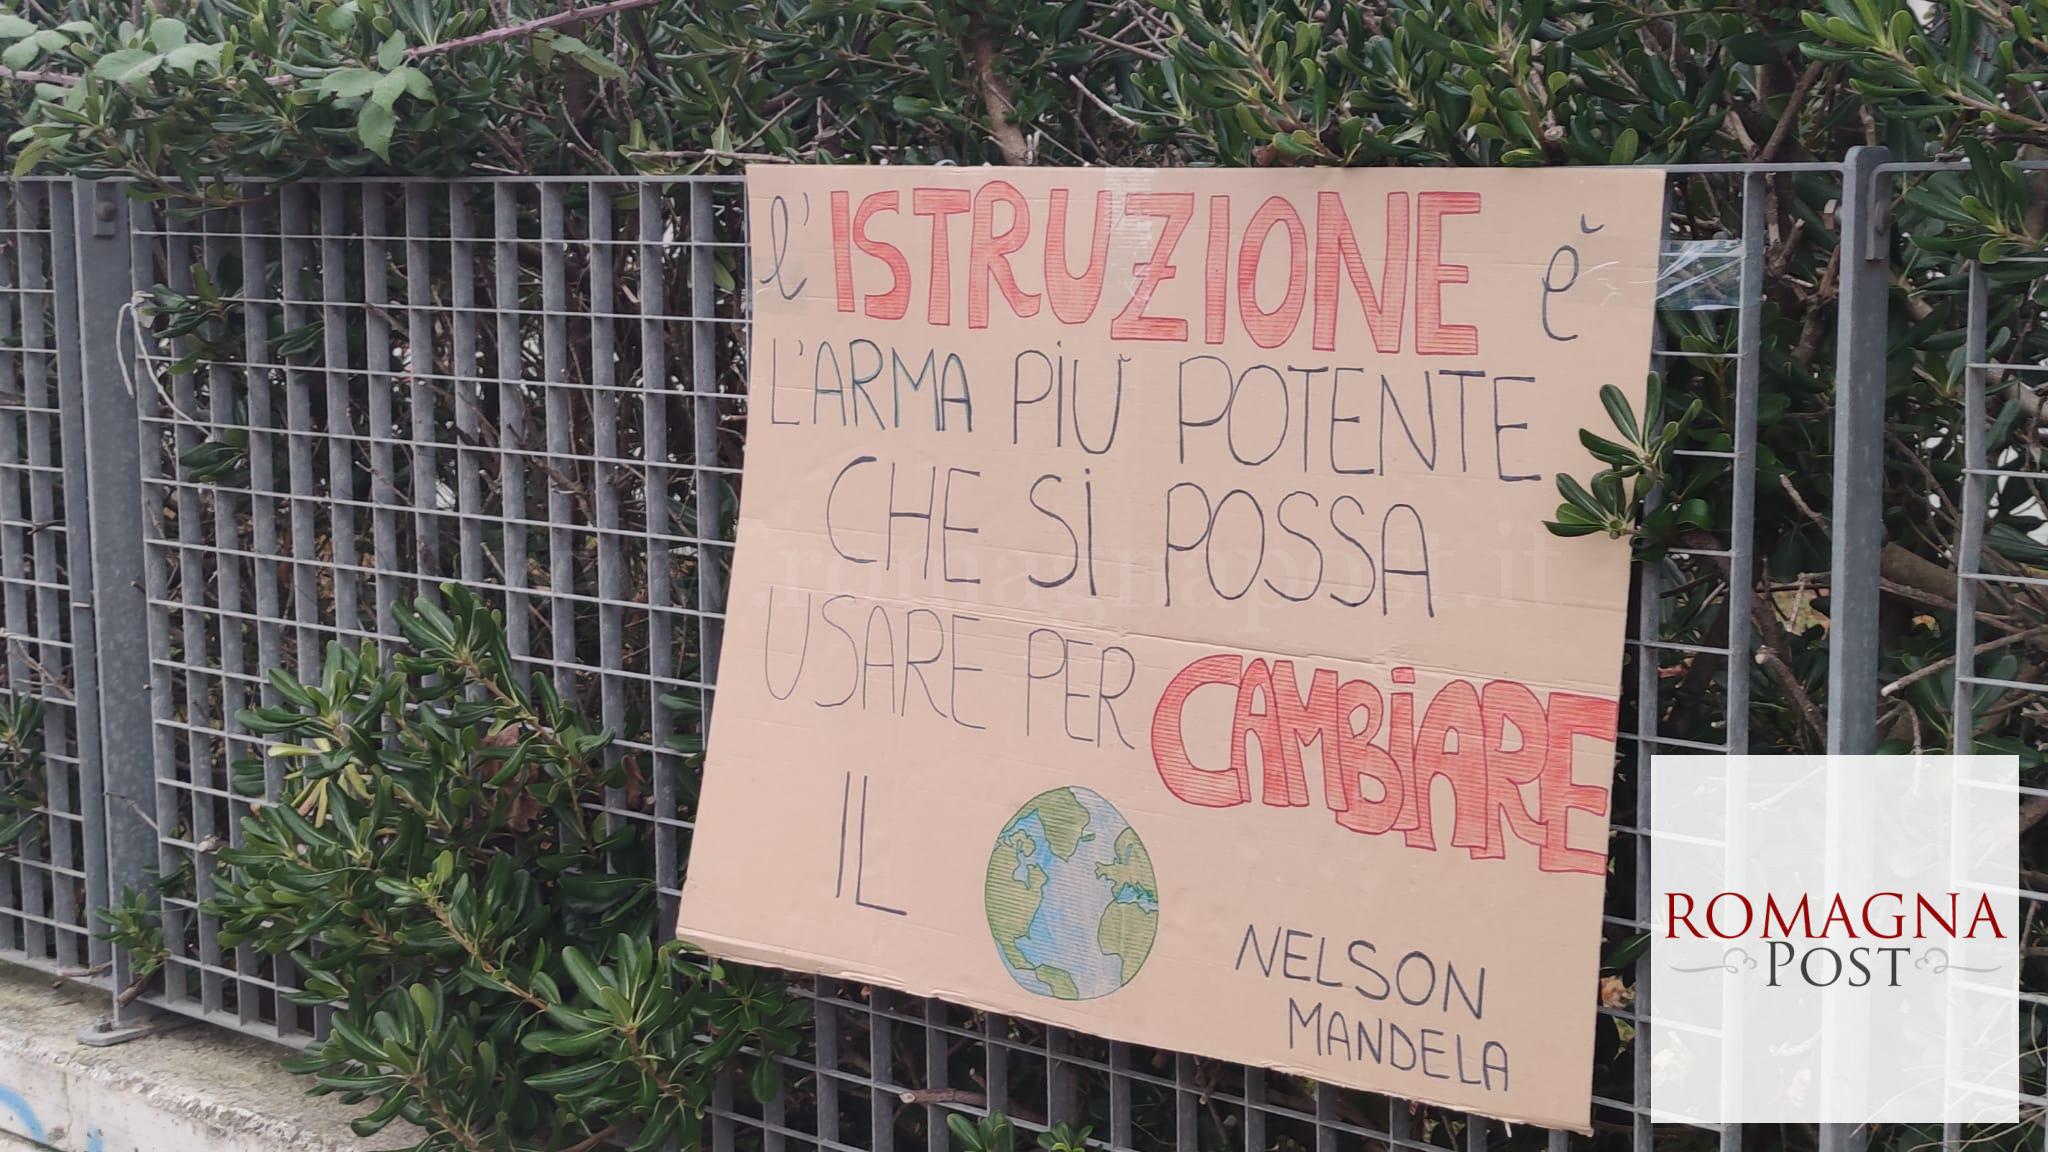 l'ISTRUZIONE è
L'ARMA PIÙ POTENTE
CHE SI POSSA
USARE PER CAMBIARE
IL
NELSON
MANDELA
.romagnapost.it
ROMAGNA
POST